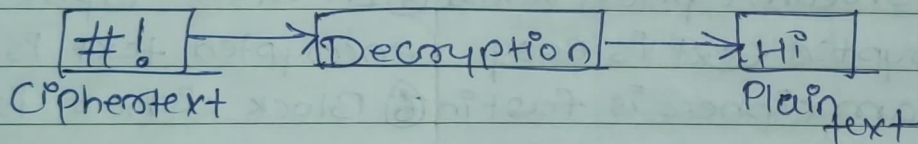 #! Decryption Hi
Ciphertext Plain
text